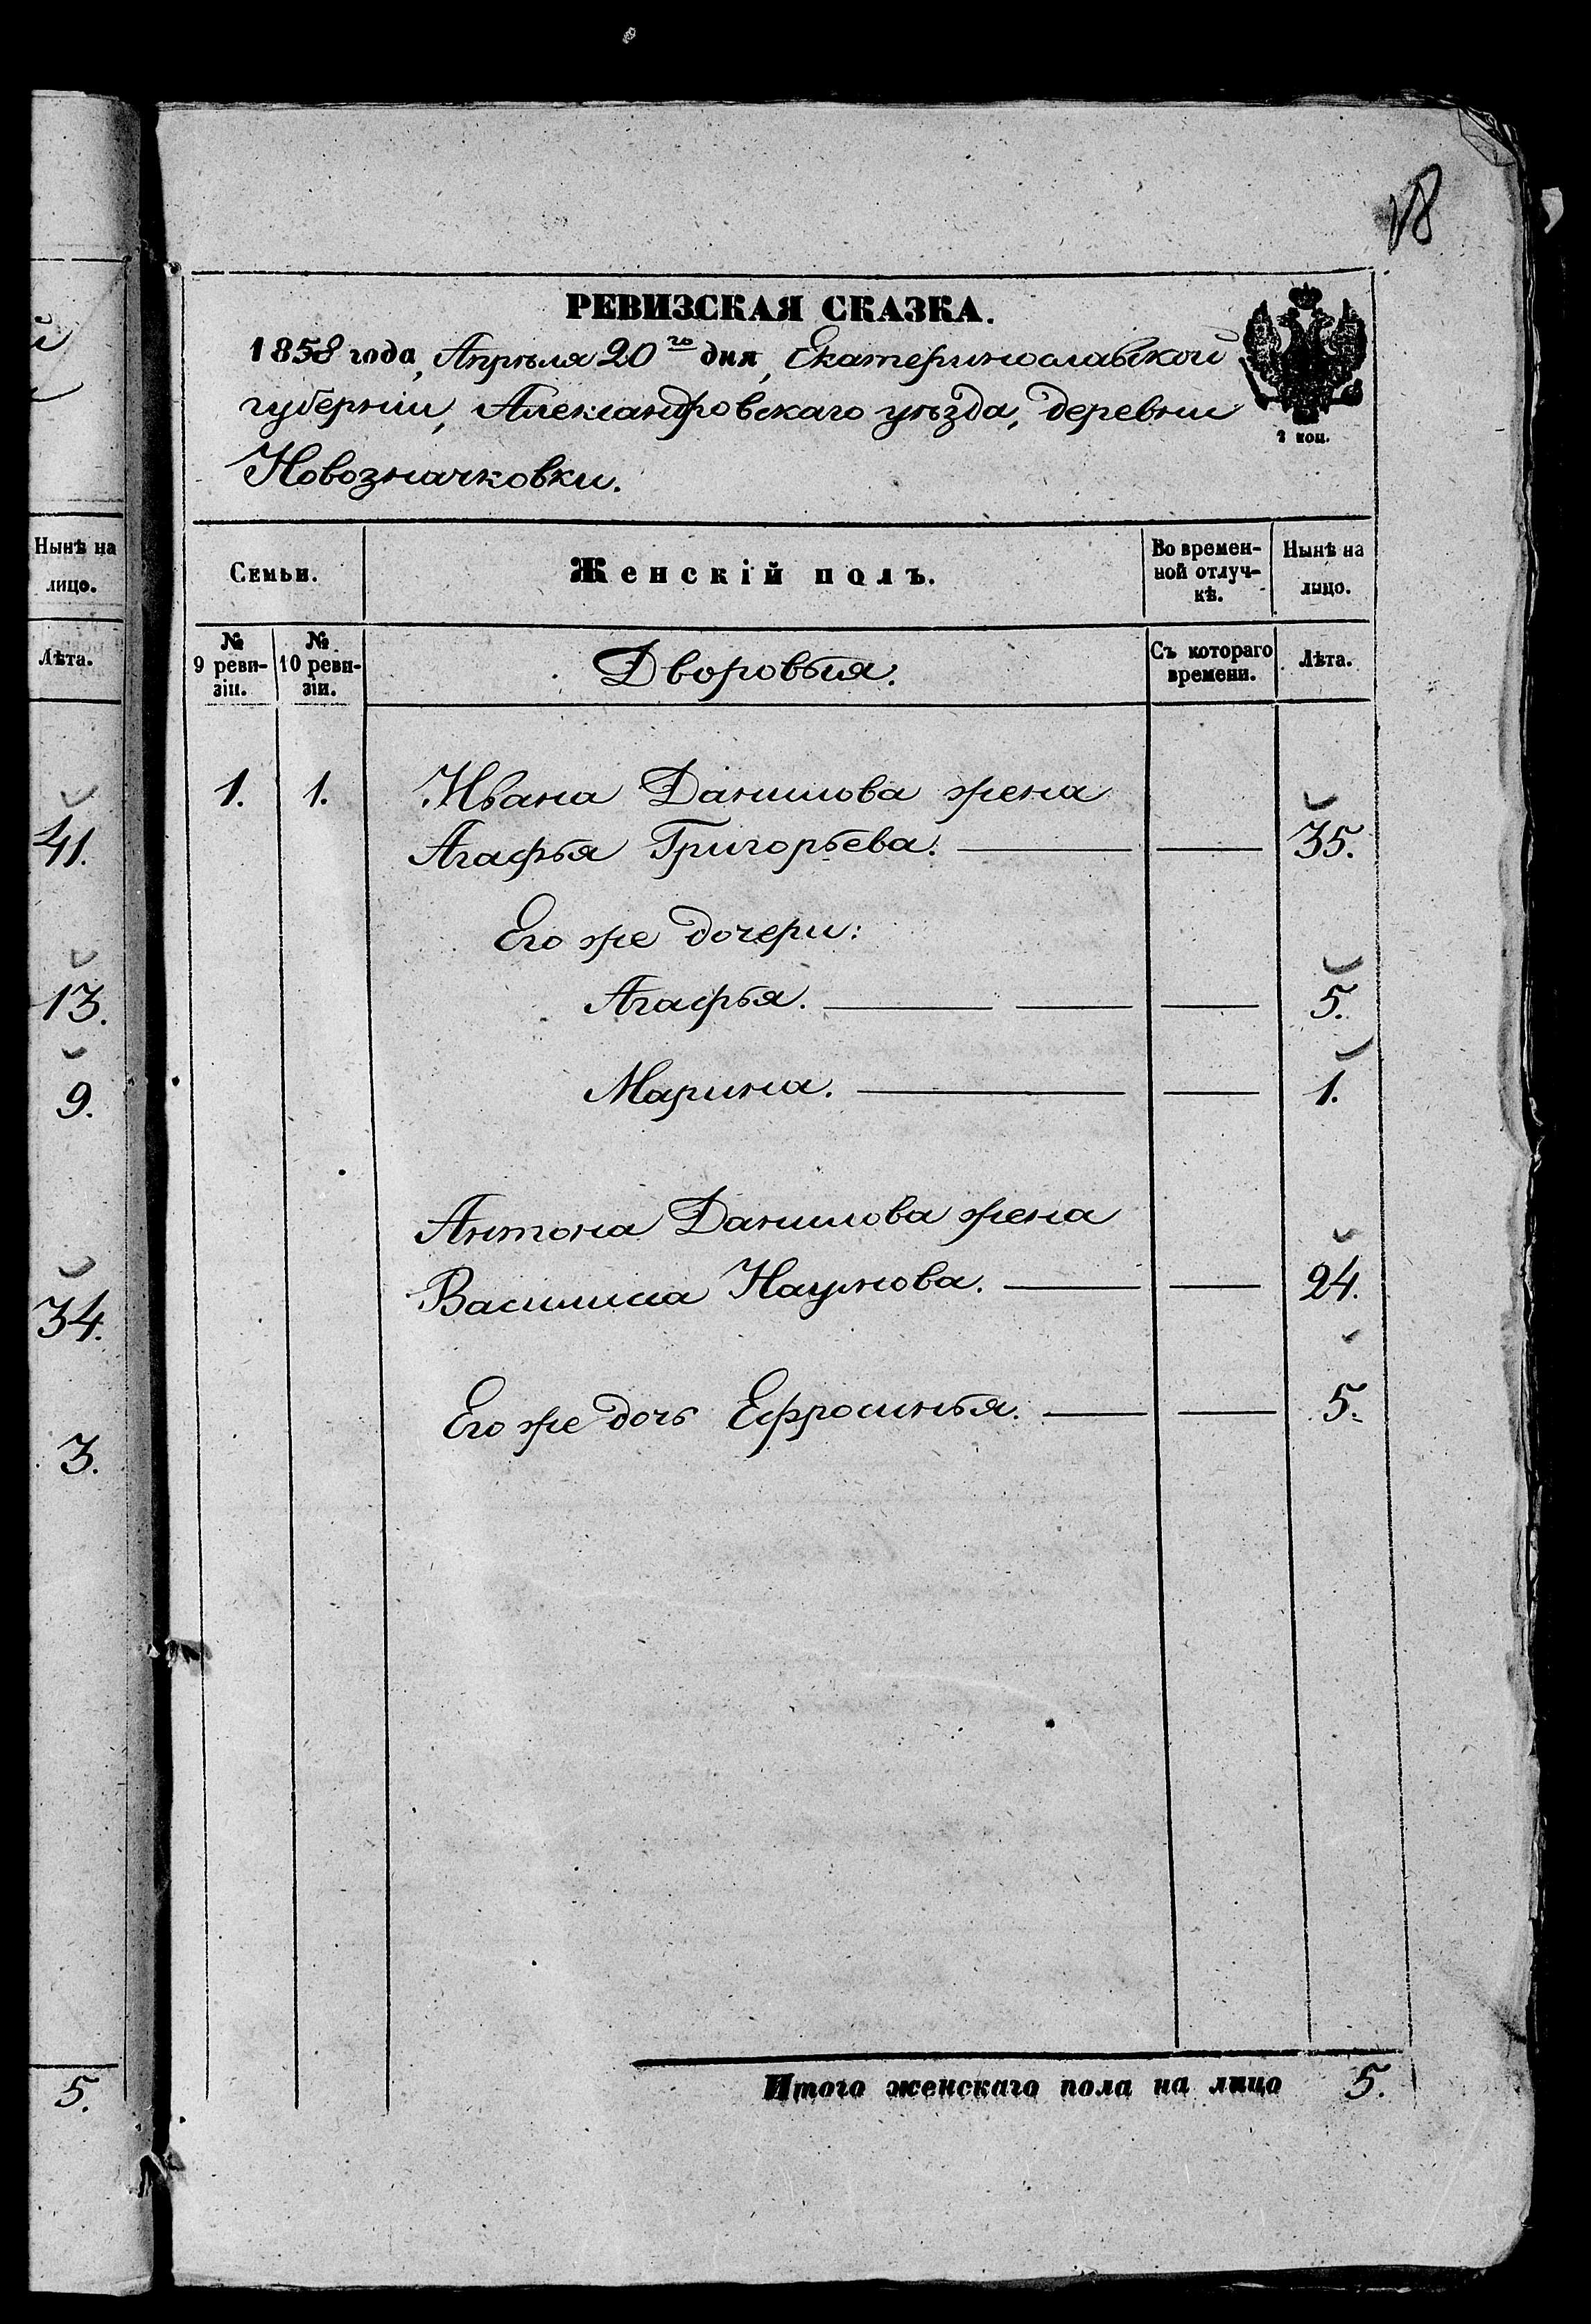 18
РЕВИЗСКАЯ СКАЗКА.
1858 года, Апрѣля 20го дня, Екатеринославской
губерніи, Александровскаго уѣзда, деревни
Новозначковки.
2 коп.
Семьи.
Женскій полъ.
Во времен-
ной отлуч-
кѣ.
Нынѣ на
лицо.
№
9 реви-
зіи.
№
10 реви-
зіи.
Дворовыя.
Съ котораго
времени.
Лѣта.
1. 1. Ивана Данилова жена
Агафья Григорьева. 35.
Его же дочери:
Агафья. 5.
Марина. 1.
Антона Данилова жена
Василиса Наумова. 24.
Его же дочь Ефросинья. 5.
Итого женскаго пола на лицо 5.
Нынѣ на
лицо.
Лѣта.
41.
13.
9.
34.
3.
5.